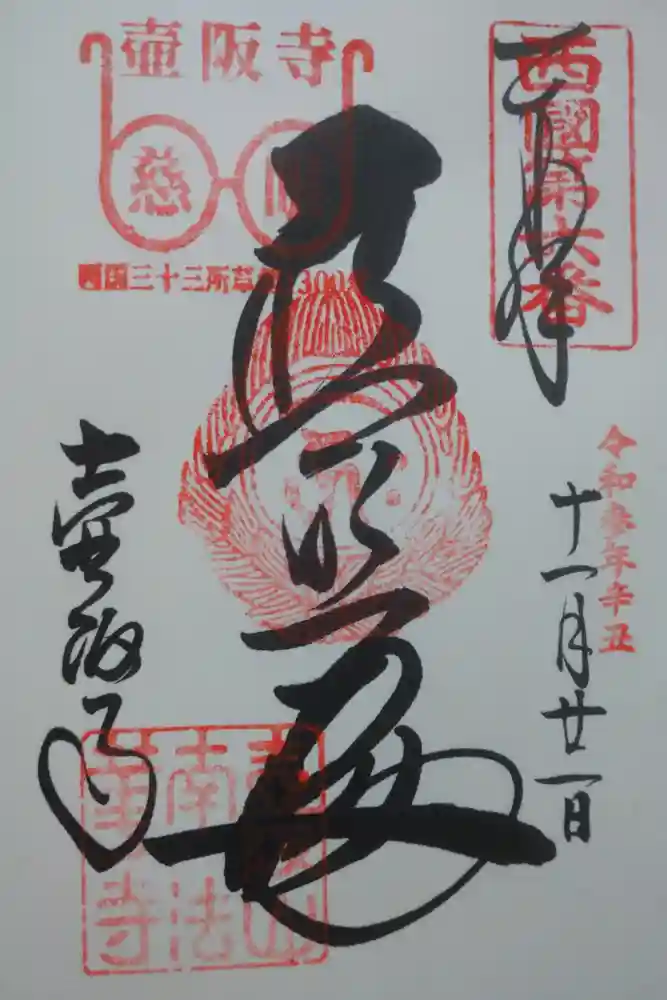 西國第六番
奉拝
令和参年辛丑
十一月廿一日
壷阪寺
慈眼
西国三十三所草創1300年
壷阪寺
南法
華寺